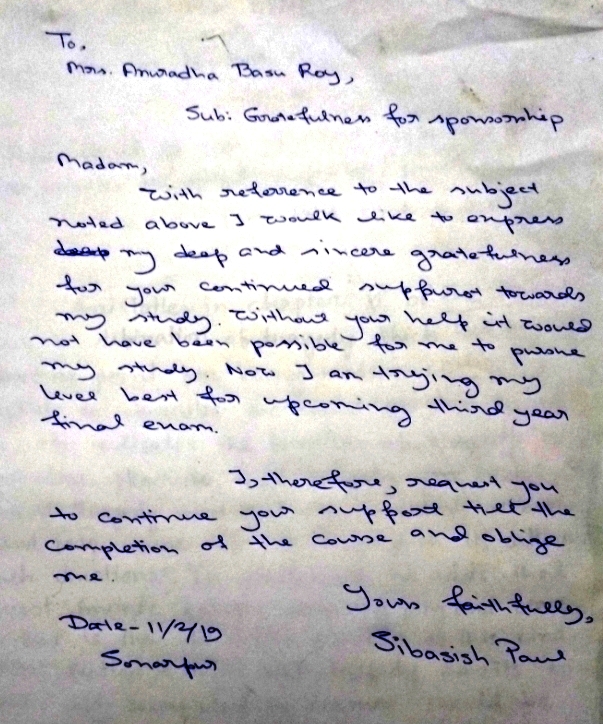 To,
Mrs. Anuradha Basu Roy,
Sub: Gratefulness for sponsorship
Madam,
With referrence to the subject
noted above I woulk like to express
my deep and sincere gratefulness
for your continued support towards
my study. Without your help it would
not have been possible for me to pursue
my study. Now I am trying my
level best for upcoming third year
final exam.
I, therefore, request you
to continue your support till the
completion of the course and oblige
me
Yours faithfully,
Date-11/2/19
Sibasish Paul
Sonarpur